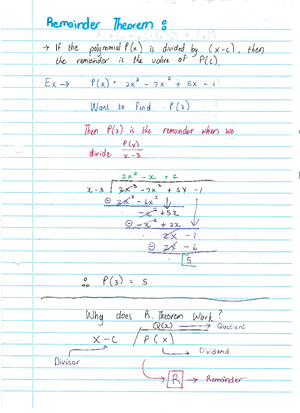 Remainder Theorem :
→ If the polynomial P(x) is divided by (x-c), then
the remainder is the value of P(c).
Ex → P(x) = 2x³ - 7x² + 5x - 1
Want to find P(3)
Then P(3) is the remainder when we
divide P(x)
x-3
2x² - x + 2
x-3 2x³ -7x² + 5x -1
⊖ 2x³ - 6x²
-x² + 5x
⊖ -x² + 3x
2x - 1
⊖ 2x - 6
5
∴ P(3) = 5
Why does R. Theorem Work?
Q(x) → Quotient
x-c P(x)
→ Dividend
Divisor
→ R → Remainder